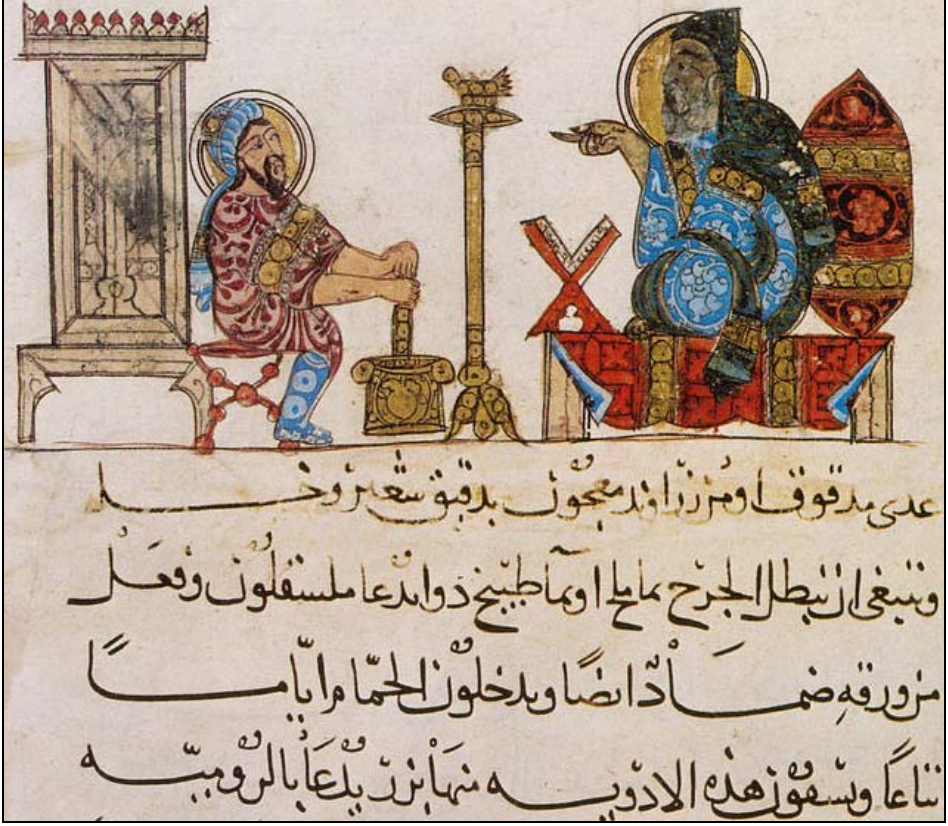 عدى مدقوق اومن زراوند معجون بدقيق شعير وخل
وينبغى ان تنطل الجرح بما ملح اوبما طبيخ دوا يدعا ملسفلون وفعل
من ورقه ضمادًا ايضًا ويدخلون الحمّام ايّامًا
تباعًا ويسقون هذه الادويه منها بزر يدعَا بالروميّه